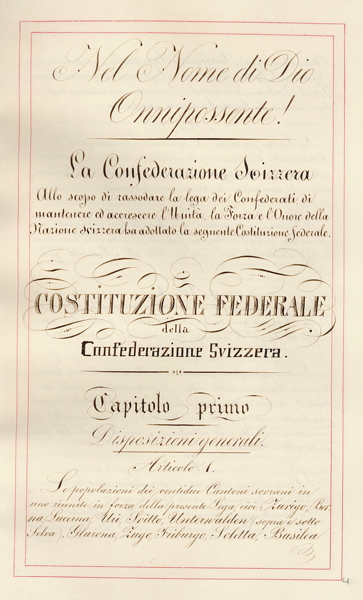 Nel Nome di Dio
Onnipossente!
La Confederazione Svizzera
Allo scopo di rassodare la lega dei Confederati di
mantenere ed accrescere l'Unità, la Forza e l'Onore della
Nazione svizzera ha adottato la seguente Costituzione federale.
COSTITUZIONE FEDERALE
della
Confederazione Svizzera.
Capitolo primo
Disposizioni generali.
Articolo 1.
Le popolazioni dei ventidue Cantoni sovrani in
uno riunite in forza della presente Lega, cioè: Zurigo, Ber
na, Lucerna, Uri, Svitto, Unterwalden (sopra e sotto
Selva), Glarona, Zugo, Friburgo, Soletta, Basilea